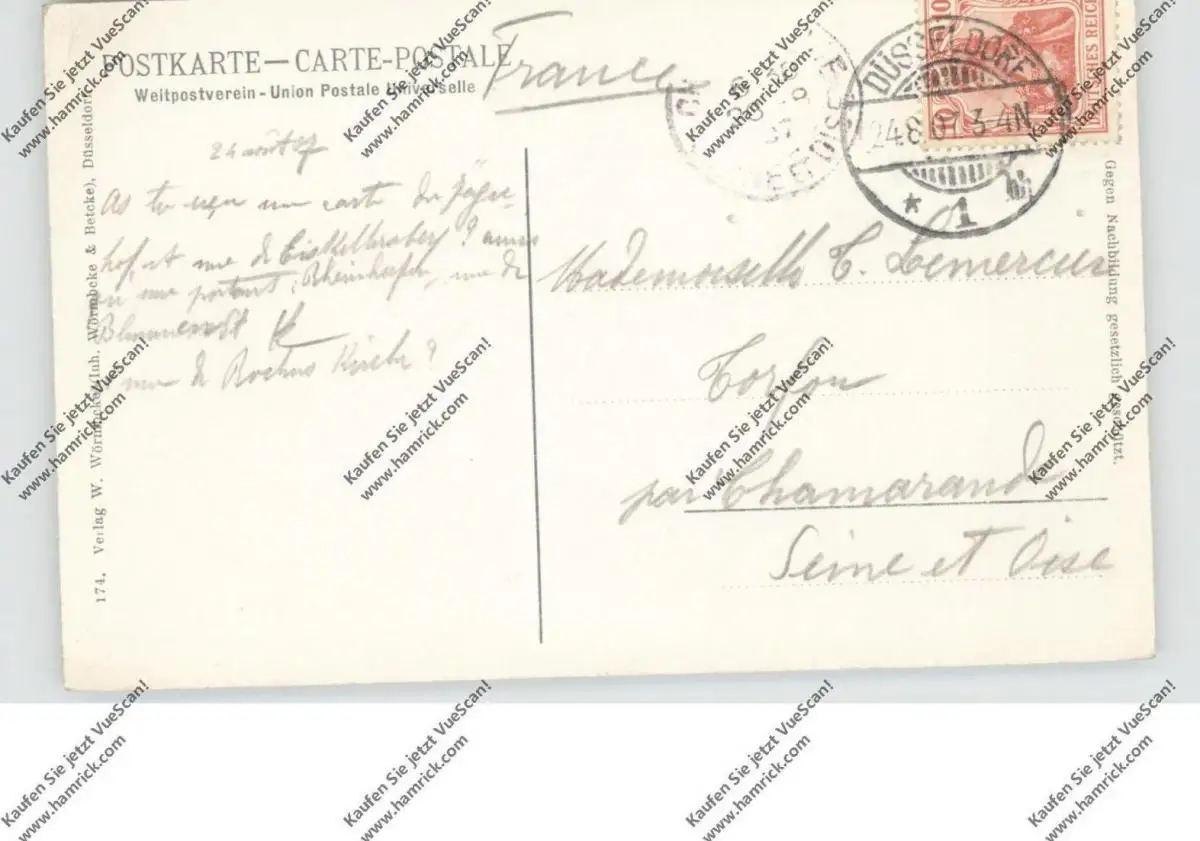 POSTKARTE — CARTE-POSTALE
Weltpostverein - Union Postale Universelle
France
DÜSSELDORF
24.8.07. 3-4N
* 1 h
DEUTSCHES REICH
10
24 août 07
As tu une carte du Jäger-
hof, et une de Eiskellerberg?
une portant Rheinhafen, une de
une de Rochus Kirche?
Mademoiselle C. Lemercier
Torfou
par Chamarande
Seine et Oise
174. Verlag W. Wörmbcke (Inh. Wörmbcke & Betcke), Düsseldorf
Gegen Nachbildung gesetzlich geschützt.
Kaufen Sie jetzt VueScan!
www.hamrick.com
Kaufen Sie jetzt VueScan!
www.hamrick.com
Kaufen Sie jetzt VueScan!
www.hamrick.com
Kaufen Sie jetzt VueScan!
www.hamrick.com
Kaufen Sie jetzt VueScan!
www.hamrick.com
Kaufen Sie jetzt VueScan!
www.hamrick.com
Kaufen Sie jetzt VueScan!
www.hamrick.com
Kaufen Sie jetzt VueScan!
www.hamrick.com
Kaufen Sie jetzt VueScan!
www.hamrick.com
Kaufen Sie jetzt VueScan!
www.hamrick.com
Kaufen Sie jetzt VueScan!
www.hamrick.com
Kaufen Sie jetzt VueScan!
www.hamrick.com